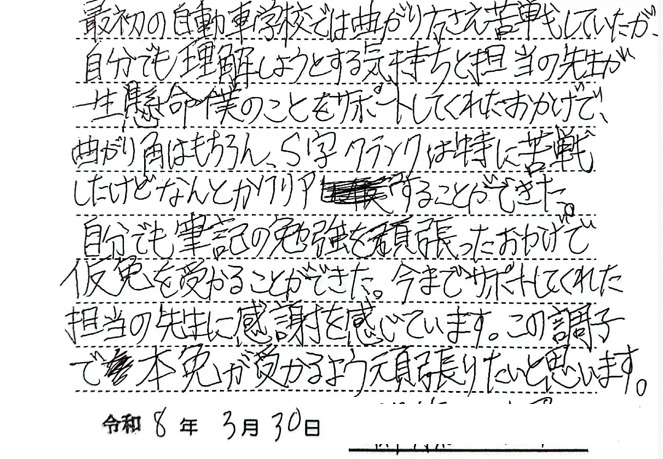 最初の自動車学校では曲がり方さえ苦戦していたが、
自分でも理解しようとする気持ちと担当の先生が
一生懸命僕のことをサポートしてくれたおかげで、
曲がり角はもちろん、S字クランクは特に苦戦
したけどなんとかクリアすることができた。
自分でも筆記の勉強を頑張ったおかげで
仮免を受かることができた。今までサポートしてくれた
担当の先生に感謝を感じています。この調子
で本免が受かるよう頑張りたいと思います。
令和 8 年 3 月 30 日